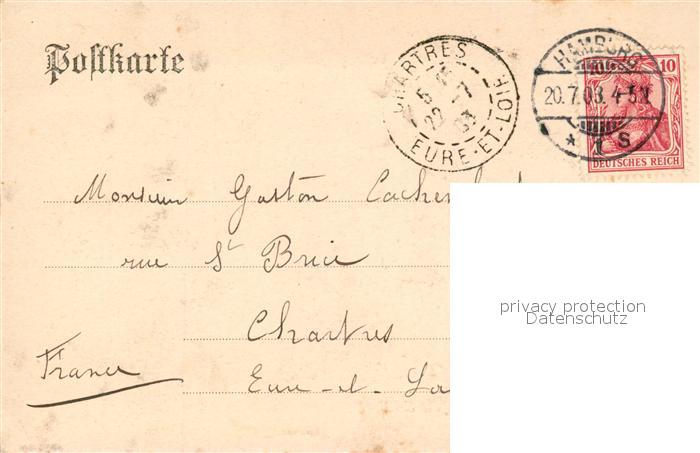 Postkarte
CHARTRES
EURE-ET-LOIR
22
HAMBURG
20.7.03. 4-5 N
* 1 S
10
DEUTSCHES REICH
Monsieur Gaston
rue St Brice
Chartres
France
Eure-et-Lo
privacy protection
Datenschutz